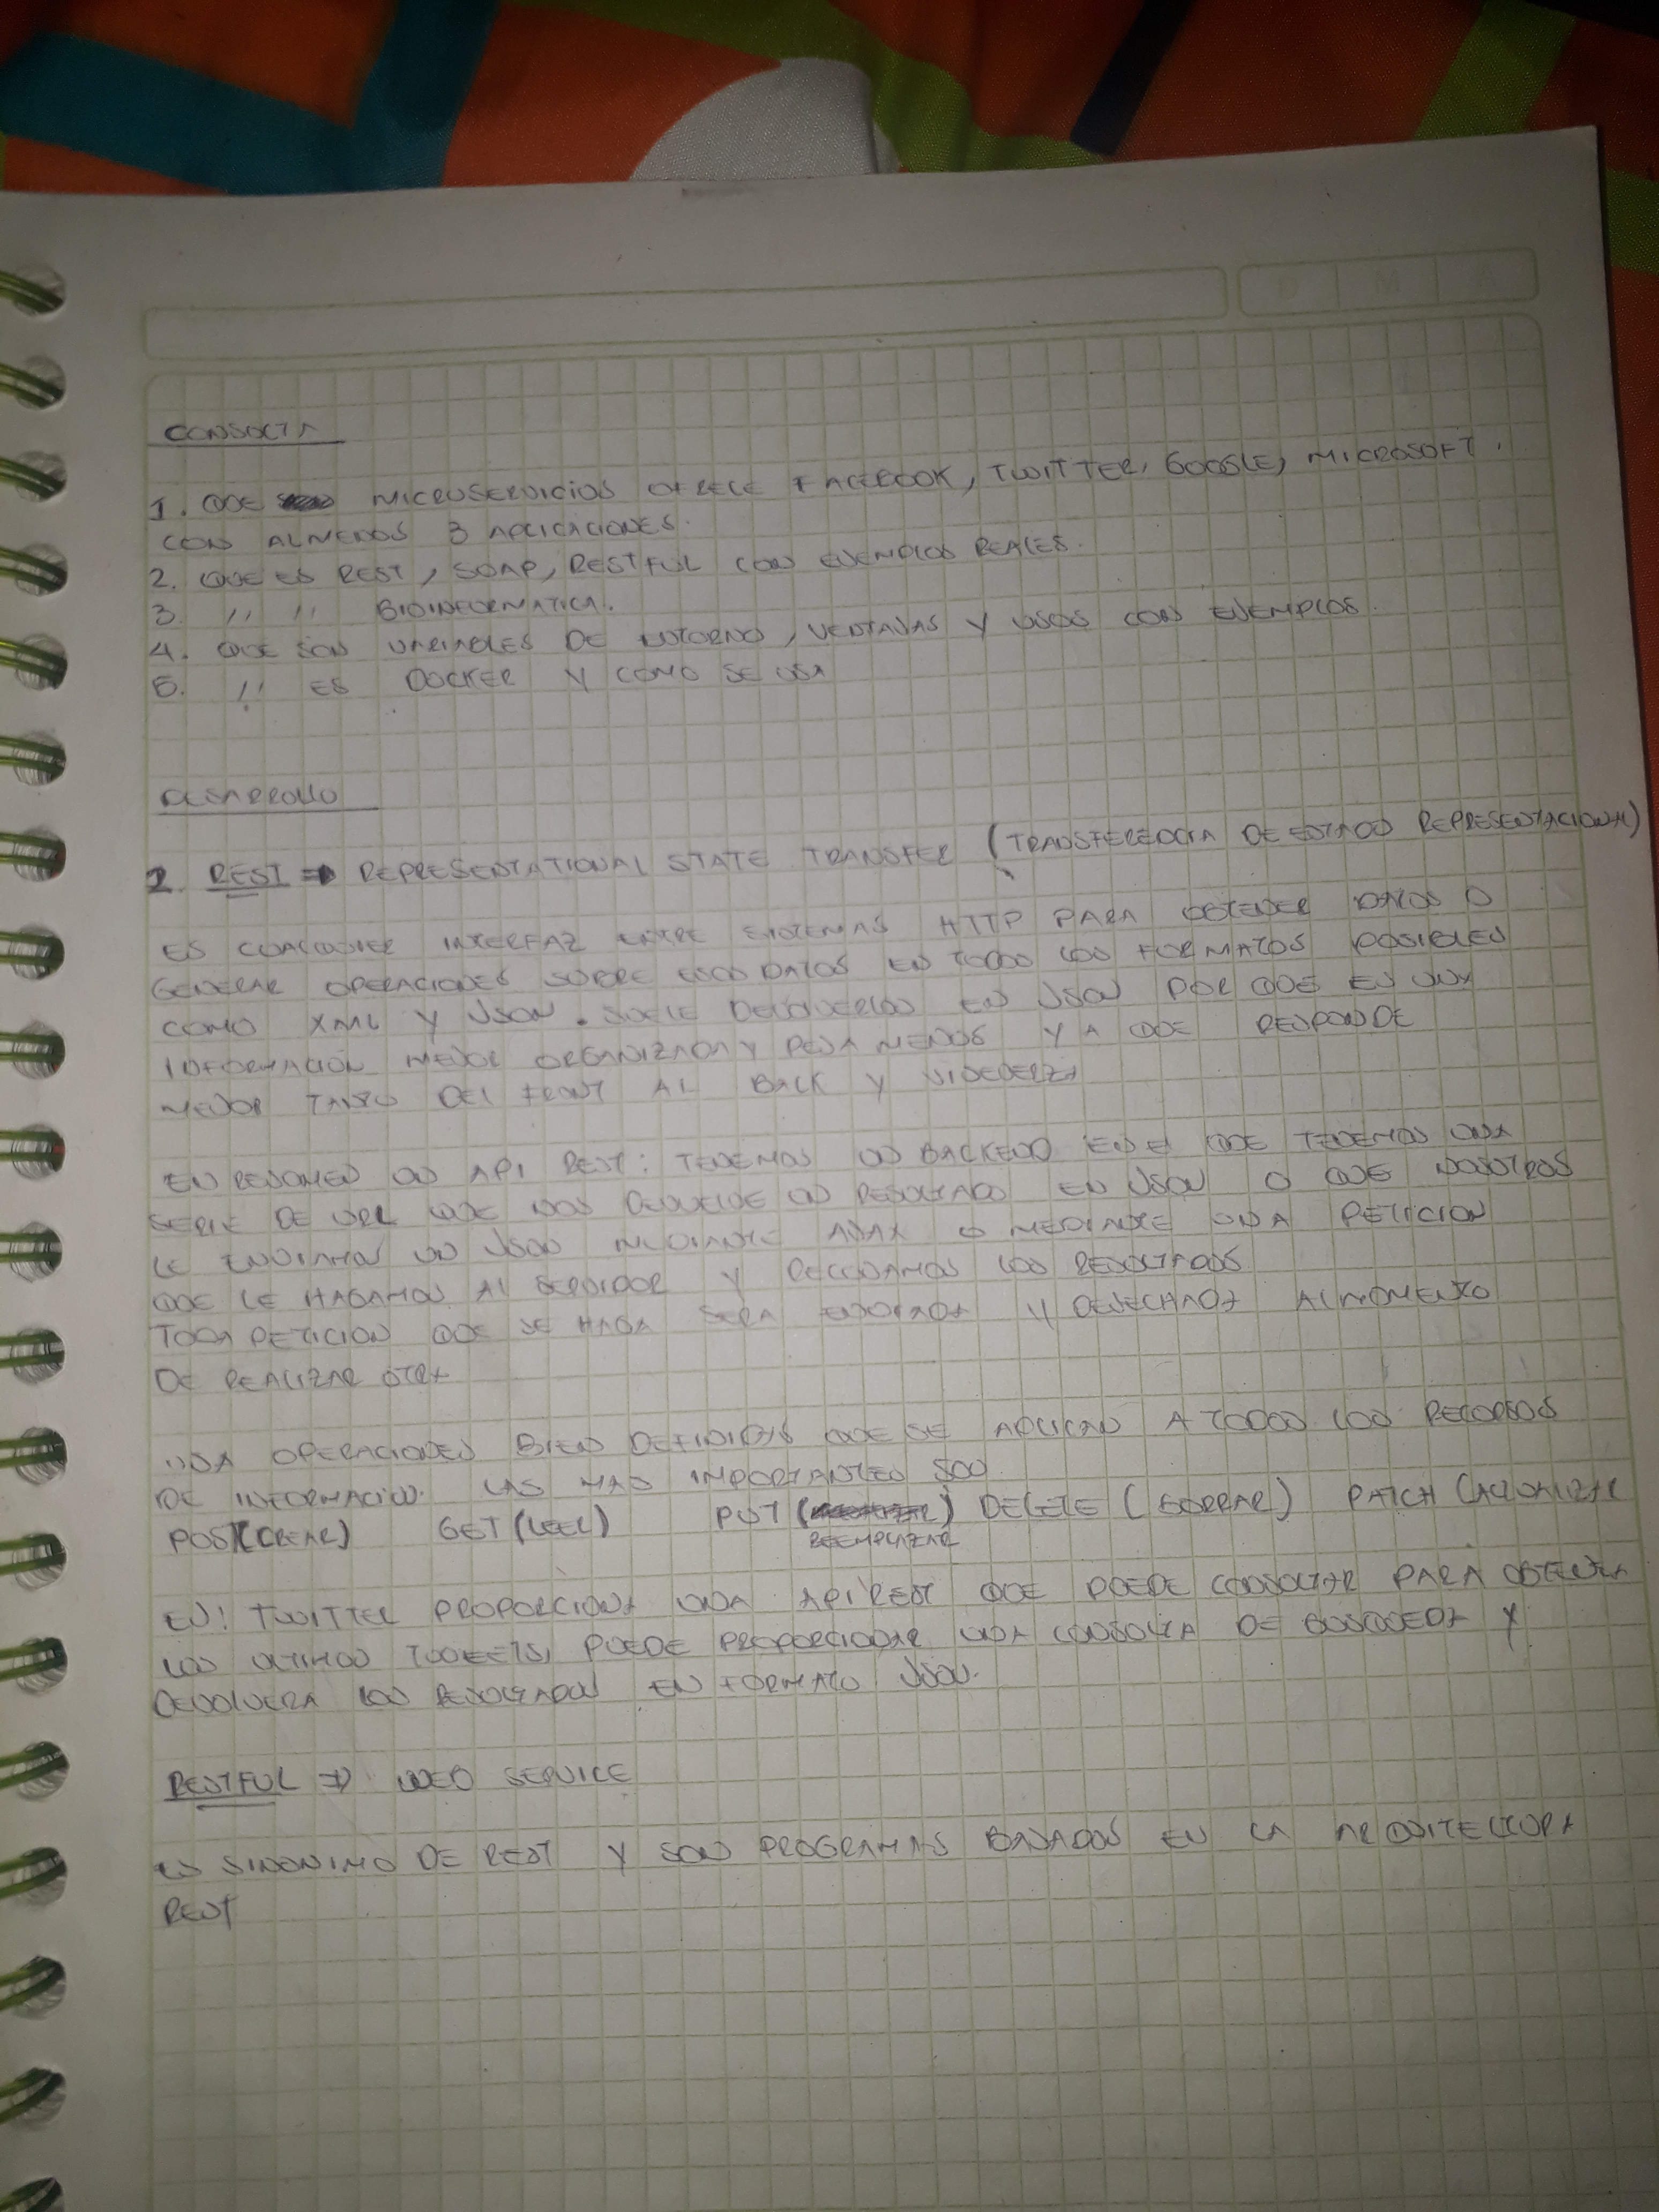 CONSULTA
1. QUE MICROSERVICIOS OFRECE FACEBOOK, TWITTER, GOOGLE, MICROSOFT.
CON ALMENOS 3 APLICACIONES.
2. QUE ES REST, SOAP, RESTFUL CON EJEMPLOS REALES.
3. // // BIOINFORMATICA.
4. QUE SON VARIABLES DE ENTORNO, VENTAJAS Y USOS CON EJEMPLOS.
5. // ES DOCKER Y COMO SE USA
DESARROLLO
2. REST => REPRESENTATIONAL STATE TRANSFER (TRANSFERENCIA DE ESTADO REPRESENTACIONAL)
ES CUALQUIER INTERFAZ ENTRE SISTEMAS HTTP PARA OBTENER DATOS O
GENERAR OPERACIONES SOBRE ESOS DATOS EN TODOS LOS FORMATOS POSIBLES
COMO XML Y JSON. SUELE DEVOLVERLOS EN JSON POR QUE ES UNA
INFORMACIÓN MEJOR ORGANIZADA Y PESA MENOS YA QUE RESPONDE
MEJOR TANTO DEL FRONT AL BACK Y VICEVERZA
EN RESUMEN UN API REST: TENEMOS UN BACKEND EN EL QUE TENEMOS UNA
SERIE DE URL QUE NOS DEVUELVE UN RESULTADO EN JSON O QUE NOSOTROS
LE ENVIAMOS UN JSON MEDIANTE AJAX O MEDIANTE UNA PETICION
QUE LE HAGAMOS AL SERVIDOR Y RECOJAMOS LOS RESULTADOS
TODA PETICION QUE SE HAGA SERA Y DESECHADA AL MOMENTO
DE REALIZAR OTRA
USA OPERACIONES BIEN DEFINIDAS QUE SE APLICAN A TODOS LOS RECURSOS
DE INFORMACION. LAS MAS IMPORTANTES SON
POST(CREAR) GET(LEER) PUT ( ) DELETE (BORRAR) PATCH (ACTUALIZAR
REEMPLAZAR
EJ! TWITTER PROPORCIONA UNA API REST QUE PUEDE CONSULTAR PARA OBTENER
LOS ULTIMOS TUWEETS, PUEDE PROPORCIONAR UNA CONSULTA DE BUSQUEDA Y
DEVOLVERA LOS RESULTADOS EN FORMATO JSON.
RESTFUL => WEB SERVICE
ES SINONIMO DE REST Y SON PROGRAMAS BASADOS EN LA ARQUITECTURA
REST